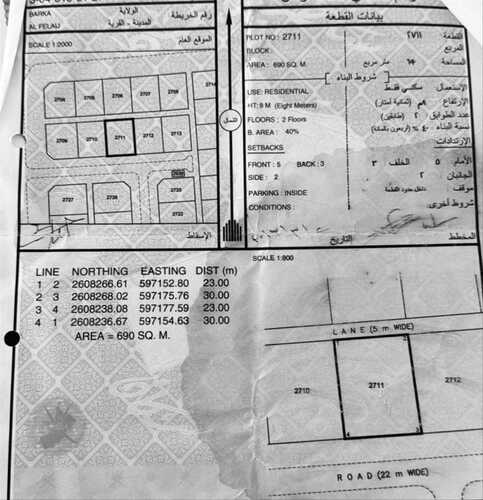 BARKA
AL FELAIJ
الولاية
المدينة - القرية
رقم الخريطة
SCALE 1:2000
الموقع العام
2708
2705
2704
2709
2710
2711
2712
2713
2727
2726
2725
2723
2714
الشمال
الإسقاط
بيانات القطعة
PLOT NO : 2711
٢٧١١
القطعة
BLOCK :
المربع
AREA : 690 SQ. M.
متر مربع
المساحة
شروط البناء
USE: RESIDENTIAL
سكني فقط
الاستعمال
HT: 8 M (Eight Meters)
٨م (ثمانية أمتار)
الارتفاع
FLOORS : 2 Floors
٢ (طابقين)
عدد الطوابق
B. AREA : 40%
٤٠ % (أربعون بالمائة)
نسبة البناء
SETBACKS
الارتدادات
FRONT : 5 BACK : 3
الأمام ٥ الخلف ٣
SIDE : 2
الجانبان ٢
PARKING : INSIDE
موقف : داخل حدود القطعة
CONDITIONS :
شروط أخرى
المخطط
التاريخ
LINE NORTHING EASTING DIST (m)
1 2 2608266.61 597152.80 23.00
2 3 2608268.02 597175.76 30.00
3 4 2608238.08 597177.59 23.00
4 1 2608236.67 597154.63 30.00
AREA = 690 SQ. M.
SCALE 1:800
LANE (5 m WIDE)
2710
2711
2712
ROAD (22 m WIDE)